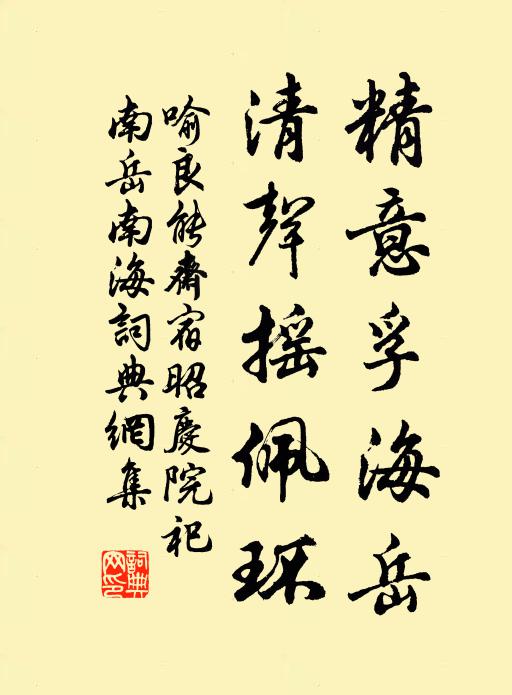 精意孚海岳
清聲摇佩環
喻良能齋宿昭慶院祀
南岳南海詞典網集
詞典
网印